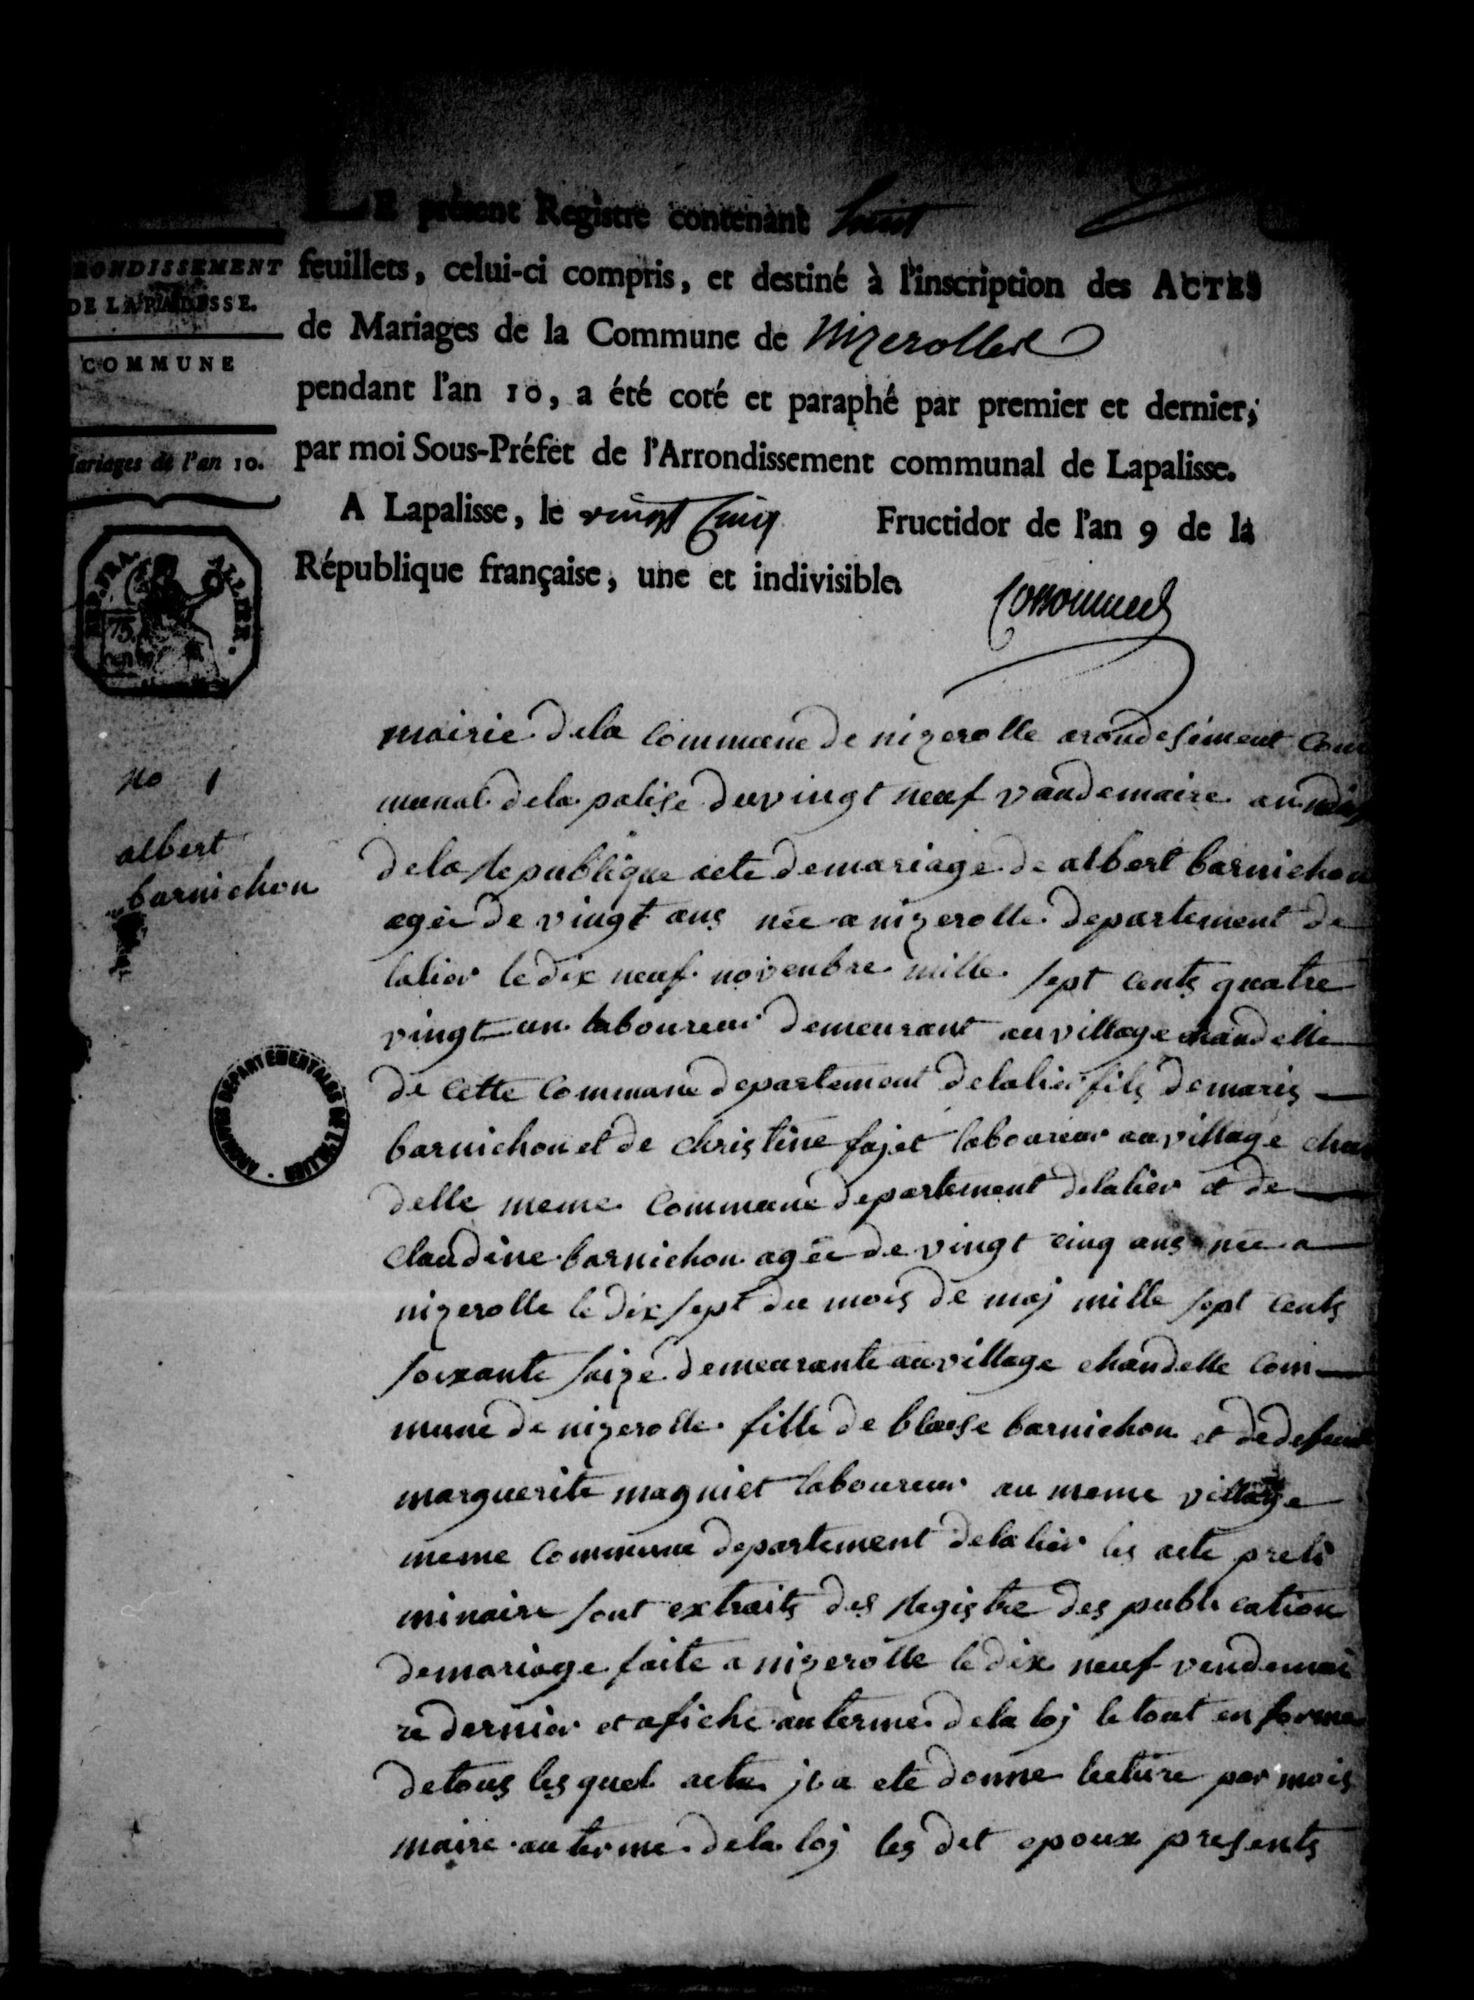 LE présent Registre contenant huit
feuillets, celui-ci compris, et destiné à l'inscription des ACTES
de Mariages de la Commune de Nizerolles
pendant l'an 10, a été coté et paraphé par premier et dernier,
par moi Sous-Préfet de l'Arrondissement communal de Lapalisse.
A Lapalisse, le vingt Cinq Fructidor de l'an 9 de la
République française, une et indivisible.
RONDISSEMENT
DE LAPALISSE.
COMMUNE
Mariages de l'an 10.
REP. FRA.
ALLIER.
75
CEN
no 1
albert
barnichon
ARCHIVES DEPARTEMENTALES DE L'ALLIER
mairie dela commune de nizerolle arondesiment com
munal dela palise du vingt neuf vandemaire an dix
dela republique acte demariage de albert barnichon
agée de vingt ans née a nizerolle departement de
lalier le dix neuf novenbre mille sept cents quatre
vingt un laboureur demeurant au village chandelle
de cette commune departement delalier fils de maris
barnichon et de christine fajet laboureur au village chan
delle meme commune departement delalier et de
claudine barnichon agée de vingt cinq ans née a
nizerolle le dix sept du mois de maj mille sept cents
soixante saize demeurante au village chandelle com
mune de nizerolle fille de blaise barnichon et de defunt
marguerite magniet laboureur au meme village
meme commune departement delalier les acte preli
minaire sont extraits des registre des publication
demariage faite a nizerolle le dix neuf vendemai
re dernier et afiche au terme dela loj le tout en forme
detous les quel acte j la ete donne lecture par mois
maire au terme dela loj les dit epoux presents